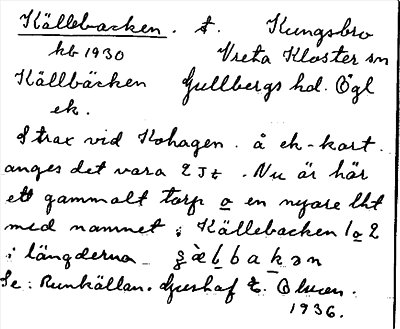 Källebacken. t. Kungsbro
hb 1930 Vreta Kloster sn
Källbäcken Gullbergs hd. Ögl
ek.
Strax vid Kohagen. å ek-kart.
anges det vara 2 Jt. Nu är här
ett gammalt torp o en nyare lht
med namnet; Källebacken 1 o 2
i längderna
Se: Runkällan. Gustaf E. Olsson.
1936.